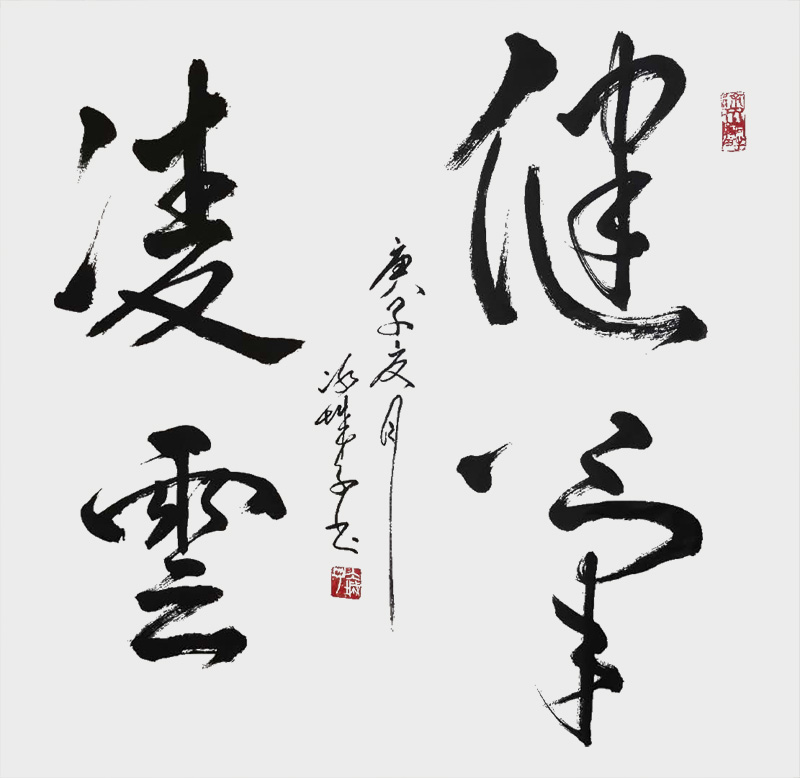 健筆
凌雲
庚子夏月
子书